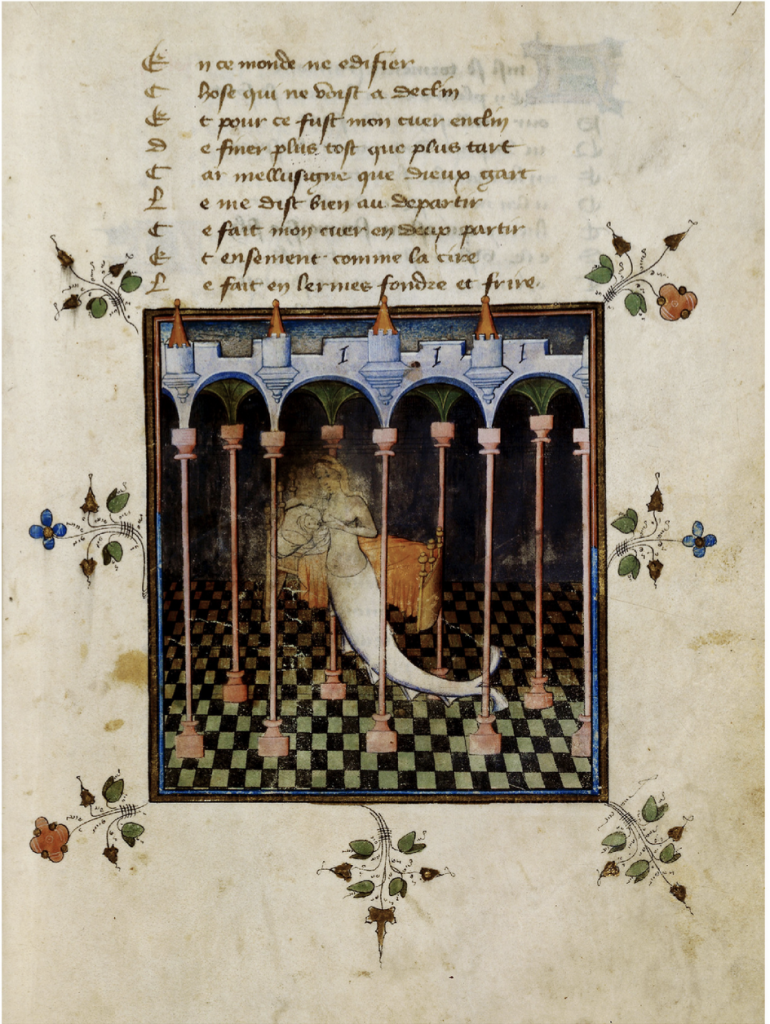 E n ce monde ne edifier
C hose qui ne voist a declin
E t pour ce fust mon cuer enclin
d e finer plus tost que plus tart
C ar mellusigne que dieux gart
L e me dist bien au departir
C e fait mon cuer en deux partir
E t ensement comme la cire
L e fait en lermes fondre et frire.